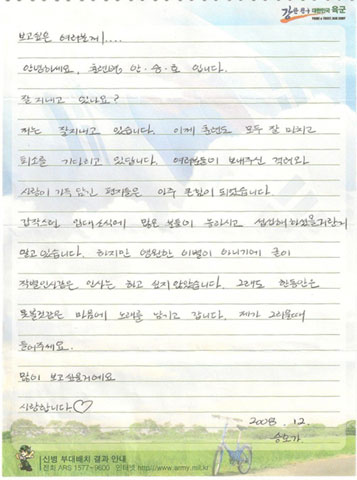 강한친구 대한민국 육군
보고싶은 여러분께....
안녕하세요, 훈련병 안·승·호 입니다.
잘 지내고 있나요?
저는 잘지내고 있습니다. 이제 훈련도 모두 잘 마치고
퇴소를 기다리고 있답니다. 여러분들이 보내주신 격려와
사랑이 가득 담긴 편지들은 아주 큰힘이 되었습니다.
갑작스런 입대소식에 많은 분들이 놀라시고 섭섭해하셨을거란거
알고있습니다. 하지만 영원한 이별이 아니기에 굳이
작별인사같은 인사는 하고 싶지 않았습니다. 그래도 한동안은
못볼것같은 마음에 노래를 남기고 갑니다. 제가 그리울때
들어주세요.
많이 보고싶을거에요
사랑합니다♡
2008. 12.
승호가
신병 부대배치 결과 안내
전화 ARS 1577-9600 인터넷 http://www.army.mil.kr